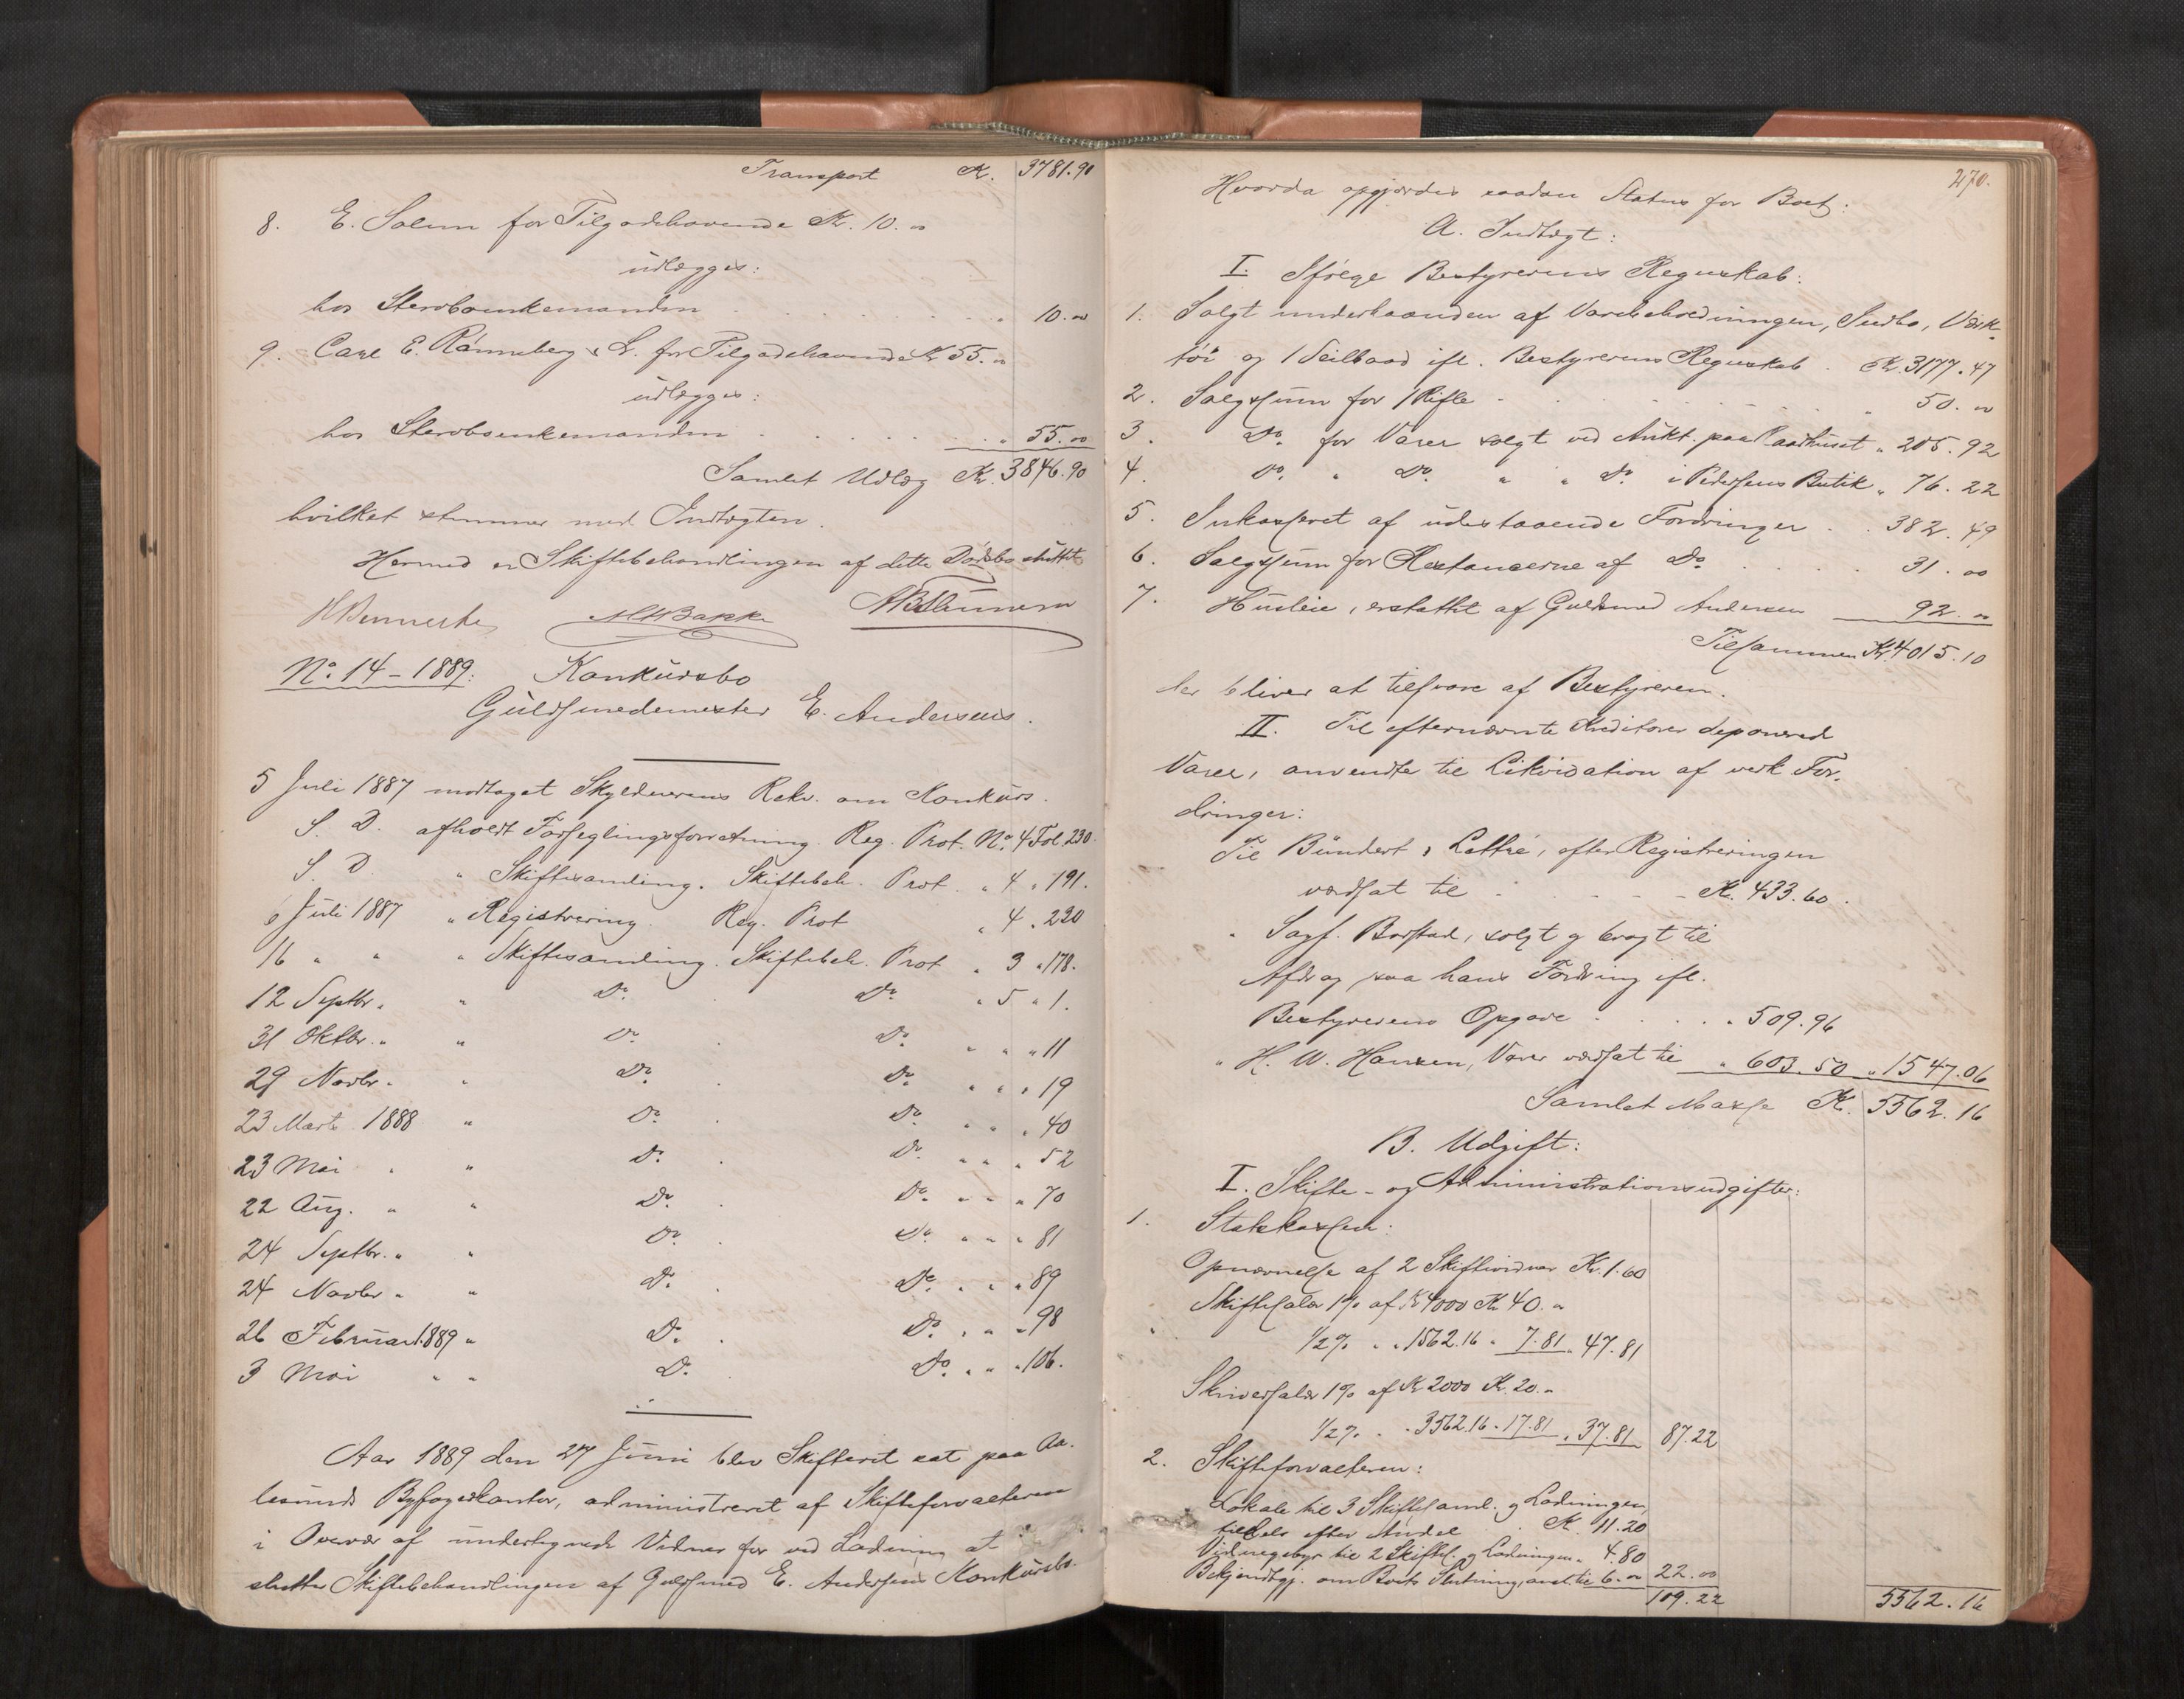 Transport Kr. 3781.90
8. E. Solem for Tilgodehavende Kr. 10.00
udlægges:
hos Stervboenkemanden . . . . . . . " 10.00
9. Carl E. Rönneberg & S. for Tilgodehavende Kr 55.00
udlægges:
hos Stervboenkemanden . . . . . . " 55.00
Samlet Udlæg Kr. 3846.90
hvilket stemmer med Indtægten.
Hermed er Skiftebehandlingen af dette Dödsbo sluttet
No. 14 - 1889. Konkursbo
Guldsmedemester E. Andersens.
5 Juli 1887 modtaget Skyldnerens Rekv. om Konkurs.
S. D. afholdt Forseglingsforretning. Reg. Prot. No. 4 Fol 230.
S. D. " Skiftesamling. Skiftebeh. Prot. " 4 " 191.
6 Juli 1887 " Registrering. Reg. Prot " 4 " 230
16 " " " Skiftesamling. Skiftebeh. Prot " 3 " 178.
12 Septbr. " " Do. Do. " 5 " 1.
31 Oktbr. " " Do. Do. " " " 11
29 Novbr. " " Do. Do. " " " 19
23 Marts 1888 " Do. Do. " " " 40
23 Mai " " Do. Do. " " " 52
22 Aug. " " Do. Do. " " " 70
24 Septbr. " " Do. Do. " " " 81
24 Novbr " " Do. Do. " " " 89
26 Februar 1889 " Do. Do. " " " 98
3 Mai " " Do. Do. " " " 106.
Aar 1889 den 27 Juni blev Skifteret sat paa Aa-
lesunds Byfogedkontor, administreret af Skifteforvalteren
i Overvær af undertegnede Vidner for ved Lodning at
slutte Skiftebehandlingen af Guldsmed E. Andersens Konkursbo.
270.
Hvorda opgjordes saadan Status for Boet:
A. Indtægt:
I. Ifölge Bestyrerens Regnskab:
1. Solgt underhaanden af Varebeholdningen, Indbo, Værk-
töi og 1 Seilbaad ifl. Bestyrerens Regnskab . Kr. 3177.47
2. Salgssum for 1 Rifle . . . . . " 50.00
3. Do. for Varer solgt ved Aukt. paa Raadhuset " 205.92
4. Do. " Do. " " Do. i Pedersens Butik " 76.22
5. Inkasseret af udestaaende Fordringer . . 382.49
6. Salgssum for Restancerne af Do. . . . . 31.00
7. Husleie, erstattet af Guldsmed Andersen 92.00
Tilsammen Kr. 4015.10
der bliver at tilsvare af Bestyreren.
II. Til efternævnte Kreditorer deponered
Varer, anvendte til Likvidation af verk For-
dringer:
Til Bündert & Lettré, efter Registreringen
værdsat til . . . . Kr. 433.60.
" Sagf. Borstad, solgt og bragt til
Afdrag paa hans Fordring ifl.
Bestyrerens Opgave . . . . " 509.96
" H. W. Hansen, Varer værdsat til " 603.50 " 1547.06
Samlet Masse Kr. 5562.16
B. Udgift:
I. Skifte- og Administrationsudgifter:
1. Statskassen:
Opnævnelse af 2 Skiftevidner Kr. 1.60
Skiftesalær 1% af Kr 4000 Kr 40.00
1/2% " " 1562.16 " 7.81 " 47.81
Skriversalær 1% af Kr 2000 Kr. 20.00
1/2% " " 3562.16 " 17.81 " 37.81 87.22
2. Skifteforvalteren:
Lokale til 3 Skiftesaml. og Lodningen,
tildels efter Andel . . Kr. 11.20
Vidnegebyr til 2 Skiftes. og Lodningen " 4.80
Bekjendtgj. om Boets Slutning, ansl. til 6.00 22.00
109.22 5562.16